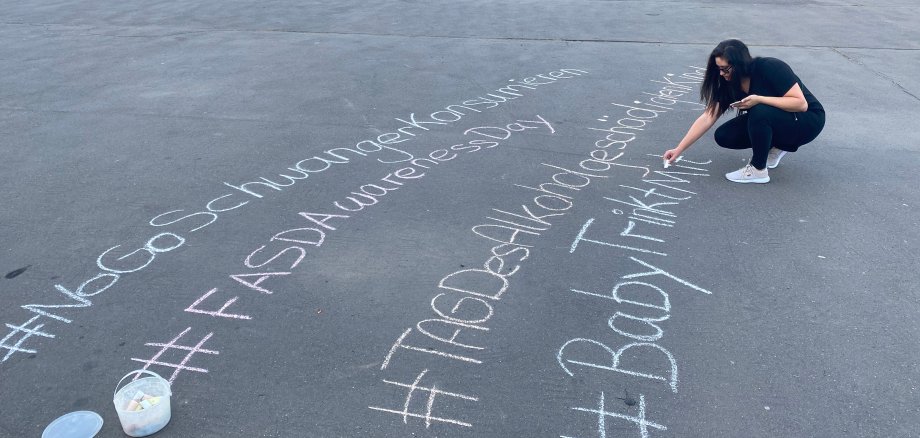 #NoGoSchwangerKonsumieren
#FASDAwarenessDay
#TAGDesAlkoholgeschädigtenKind
#BabyTrinktMit